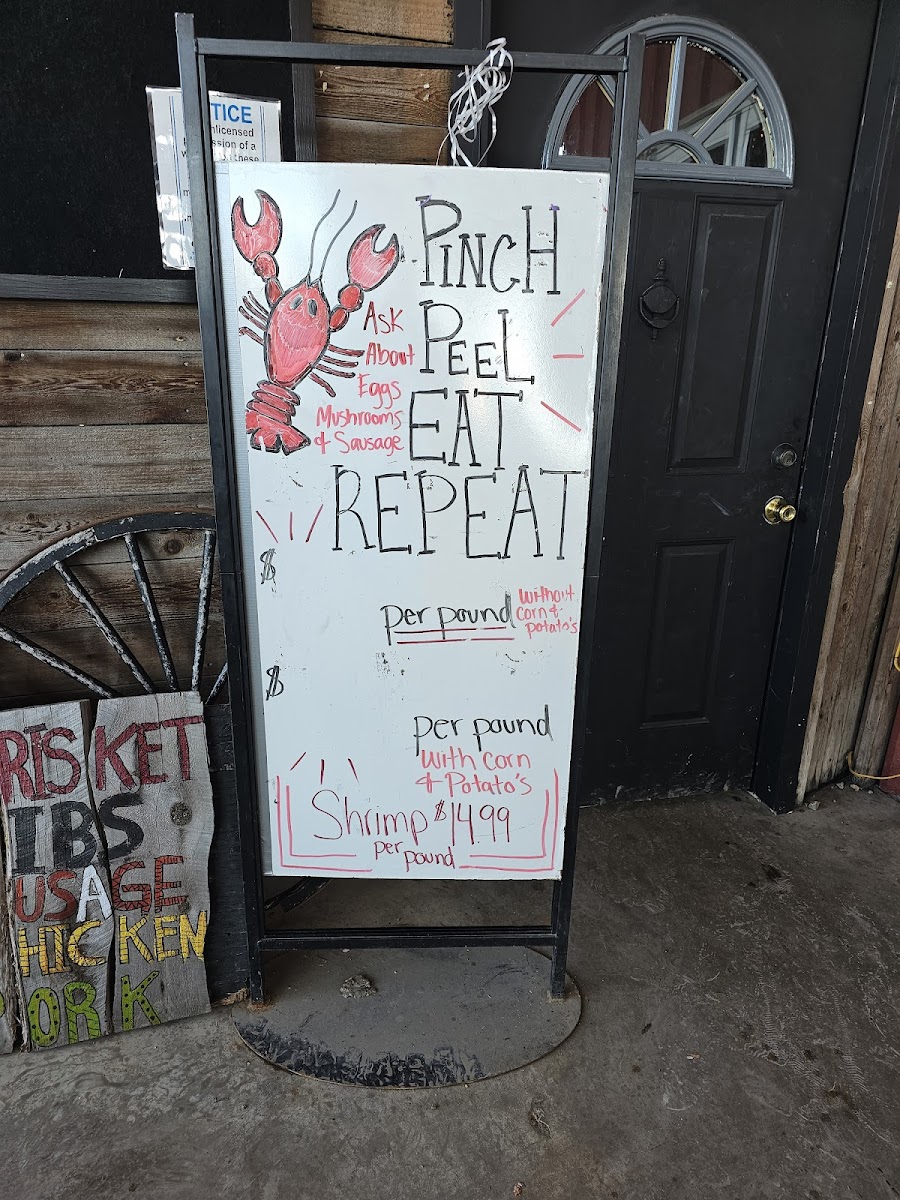 TICE
nlicensed
ssion of a
these
PINCH
PEEL
EAT
REPEAT
Ask
About
Eggs
Mushrooms
& Sausage
$
per pound
without
corn &
potato's
$
per pound
with corn
& Potato's
Shrimp $14.99
per pound
RISKET
IBS
USAGE
HICKEN
PORK